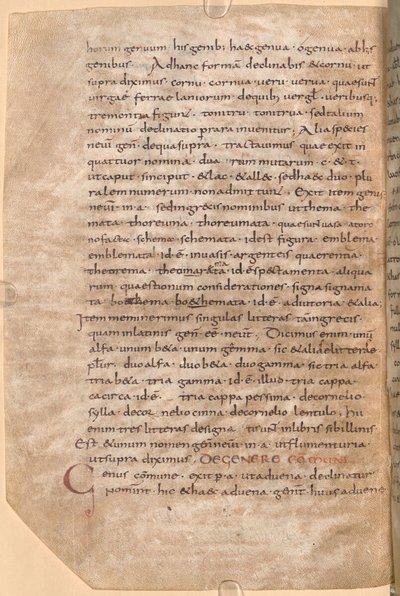 horum genuum his genib; ha&genua · o genua · ab his
genibus Ad hanc formā declinabis & cornu · ut
supra diximus · cornu · cornua · veru · verua · quae sunt
virgae ferrae laniorum · de quib; vergl · veribusq;
trementia figunt · tonitru · tonitrua · sed talium
nominū declinatio · rara invenitur · Alia species
neuī gen̄ · de qua supra · tractavimus quae exit in
quattuor nomina · dua rum mutarum · c · & · t ·
ut caput · sinciput · & lac · & allec · sed haec duo · plu
ralem numerum · non admittunt · Exit item genus
neuī · in · a · sed in grecis nominibus ut thema · the
mata · thoreuma · thoreumata · quae sunt vasa a torno
no facta · schema · schemata · id est figura · emblema
emblemata · id · ē · in vasis · argenti s · quaerentia ·
theorema · theoremata · id · ē spectamenta · aliqua
rum · quaestionum considerationes · signa signama
ta boethema · boethemata · id · ē · adiutoria · & alia;
Item meminerimus singulas litteras tam grecis ·
quam in latinis · gen̄ · ēē · neuī · Dicimus enim · unū
alfa · unum b&a · unum gēmma · sic & aliae litterae
plur · duo alfa · duo b&a · duo gamma · sic tria alfa
tria b&a · tria gamma · id · ē illud · tria cappa ·
cacista id · ē · tria cappa pessima · de cornelio
sylla · de cor nelio cinna · de cornelio lentulo · hii
enim tres litteras designa ti sunt in libris sibillinis
Est & unum nomen gen̄ neuī · in · a · ut flumen turia ·
ut supra diximus · DE GENERE CŌMUNI
Genus cōmune · exit · p · a · ut advena · declinatur
Nomint̄ · hic & haec advena · gen̄t · huius advenę